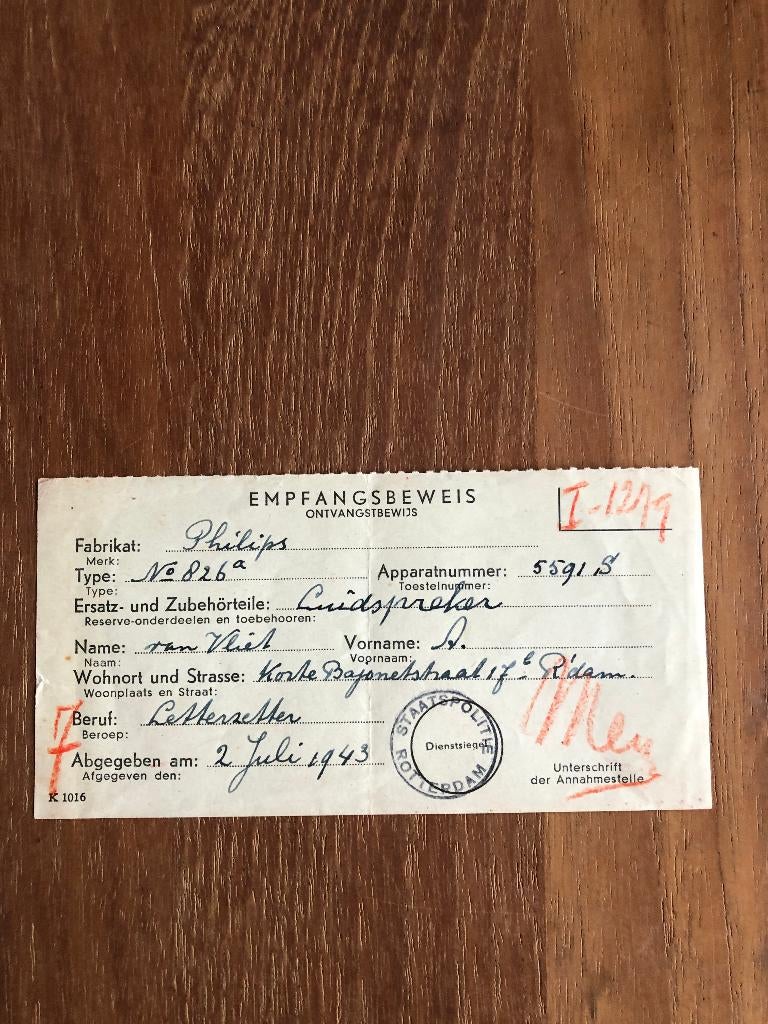 EMPFANGSBEWEIS
ONTVANGSTBEWIJS
I-1279
Fabrikat: Philips
Merk:
Type: No 826a Apparatnummer: 5591 S
Type: Toestelnummer:
Ersatz- und Zubehörteile: Luidspreker
Reserve-onderdeelen en toebehooren:
Name: van Vliet Vorname: A.
Naam: Voornaam:
Wohnort und Strasse: Korte Bajonetstraat 17 R'dam.
Woonplaats en Straat:
Beruf: Letterzetter
Beroep:
Abgegeben am: 2 Juli 1943
Afgegeven den:
STAATSPOLITIE
Dienstsiegel
ROTTERDAM
Unterschrift
der Annahmestelle
K 1016